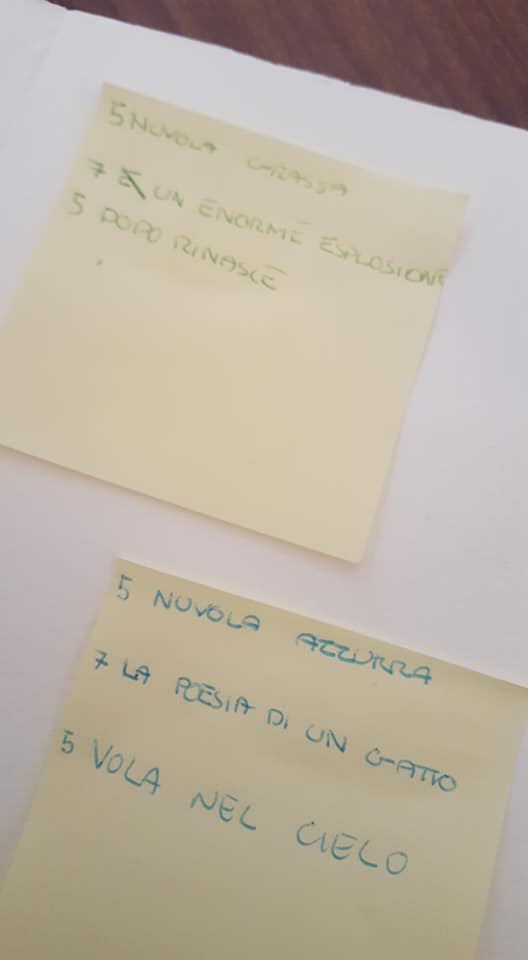 5 NUVOLA GRASSA
7 È UN ENORME ESPLOSIONE
5 DOPO RINASCE
5 NUVOLA AZZURRA
7 LA POESIA DI UN GATTO
5 VOLA NEL CIELO